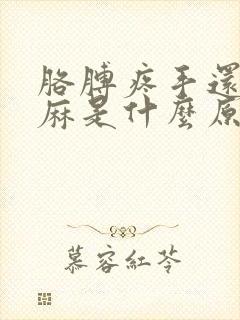 胳膊疼手還
麻是什麼原
慕容紅苓